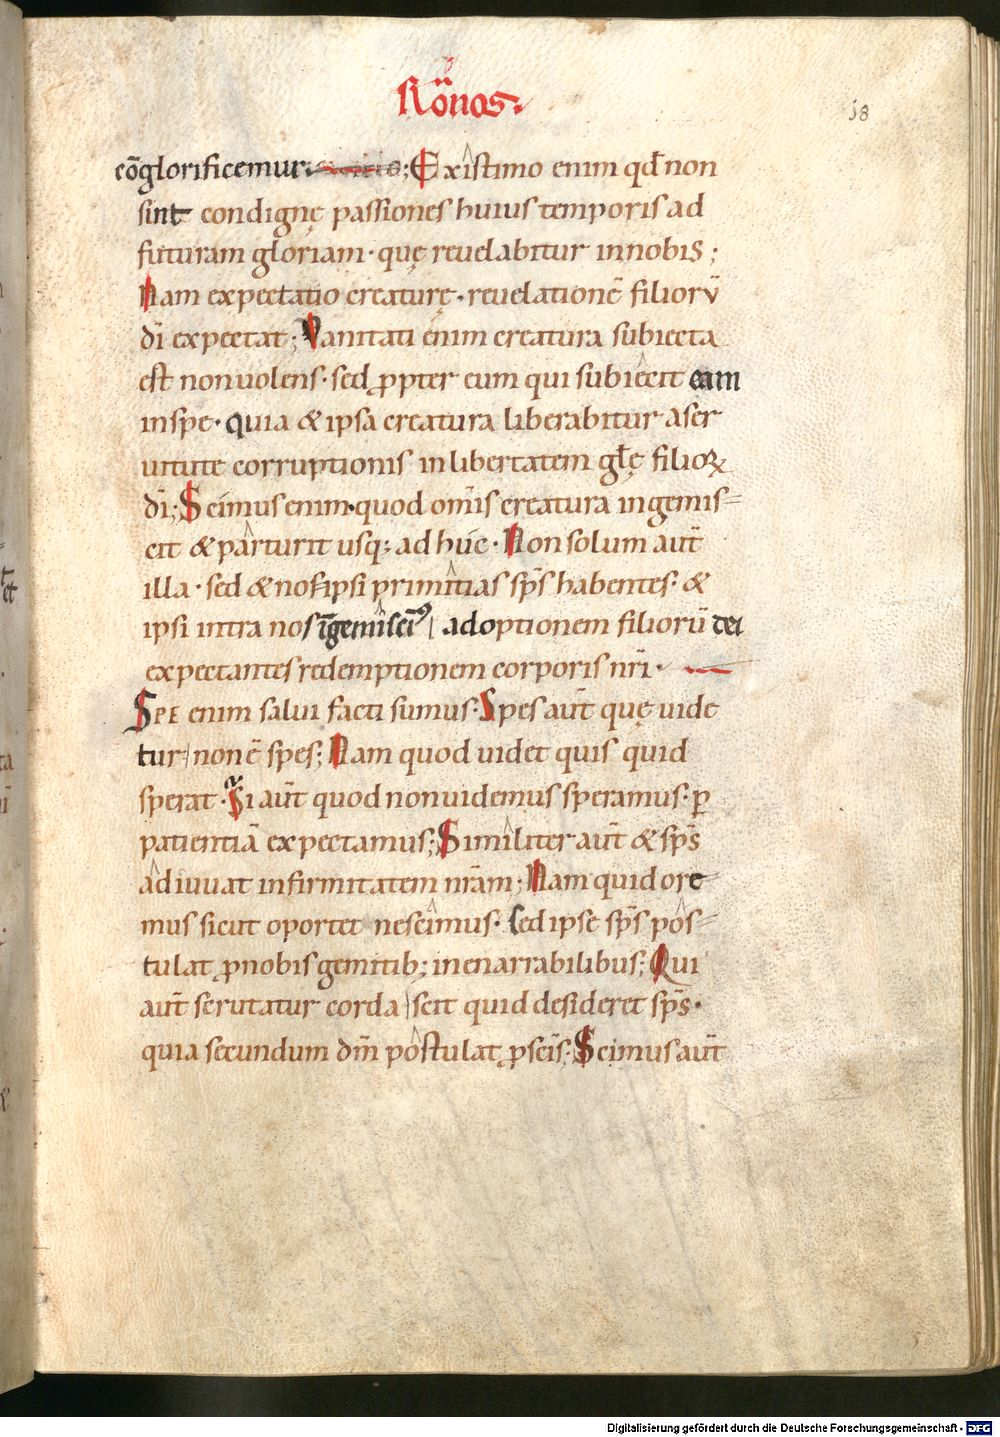 Rōnos.
18
cōglorificemur ; Existimo enim qđ non
sint condignę passiones huius temporis ad
futuram gloriam · quę reuelabitur in nobis ;
Nam expectatio creaturę · reuelationē filiorū
dī expectat ; Vanitati enim creatura subiecta
est non uolens · sed ꝓpter eum qui subiecit eam
in spe · quia & ipsa creatura liberabitur a ser
uitute corruptionis in libertatem głę filioꝝ
dī ; Scimus enim · quod om̄is creatura ingemis=
cit & parturit usq; ad huc · Non solum aūt
illa · sed & nos ipsi primitias sp̄s habentes · &
ipsi intra nos īgemiscim᷒ adoptionem filiorū dei
expectantes redemptionem corporis nr̄i ·
SPE enim salui facti sumus · Spes aūt quę uide
tur non ē spes ; Nam quod uidet quis quid
sperat · Si aūt quod non uidemus speramus · ꝑ
patientiā expectamus ; Similiter aūt & sp̄s
adiuuat infirmitatem nr̄am ; Nam quid ore=
mus sicut oportet nescimus · sed ipse sp̄s pos=
tulat ꝓ nobis gemitib; inenarrabilibus ; Qui
aūt scrutatur corda scit quid desideret sp̄s ·
quia secundum dm̄ postulat ꝓ sc̄is · Scimus aūt
Digitalisierung gefördert durch die Deutsche Forschungsgemeinschaft - DFG